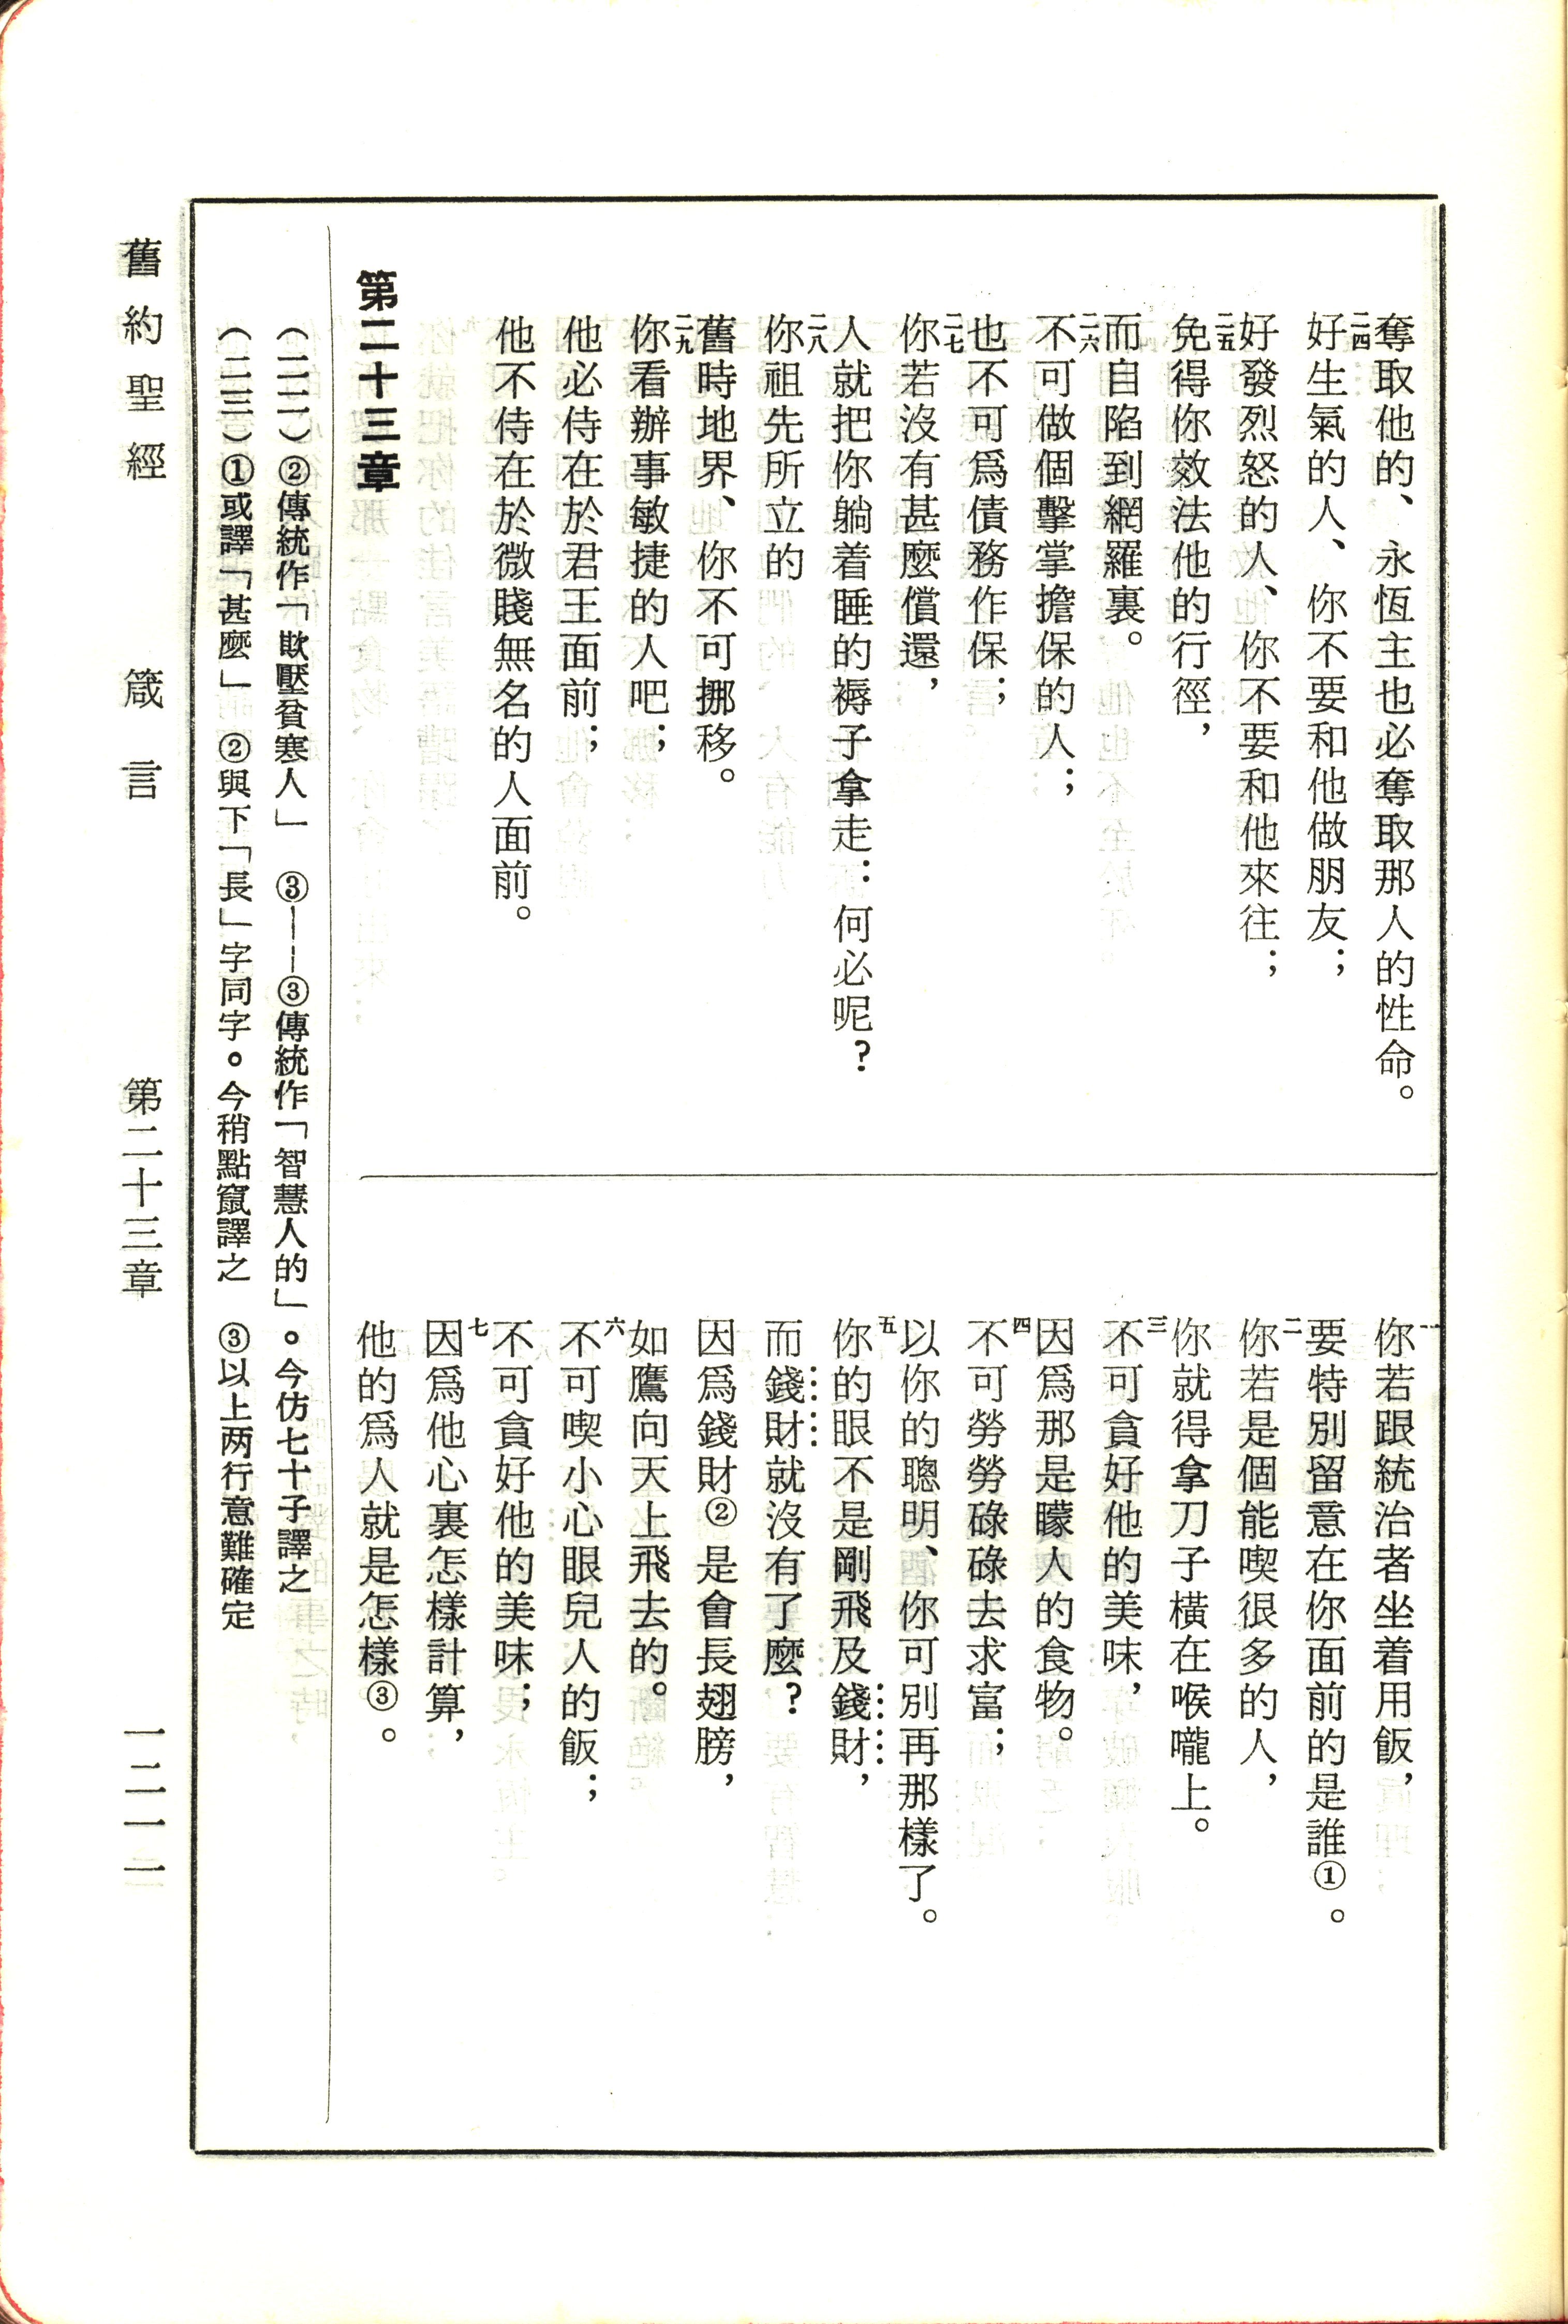 奪取他的、永恆主也必奪取那人的性命。
二四好生氣的人、你不要和他做朋友；
好發烈怒的人、你不要和他來往；
二五免得你效法他的行徑，
而自陷到網羅裏。
二六不可做個擊掌擔保的人；
也不可爲債務作保；
二七你若沒有甚麼償還，
人就把你躺着睡的褥子拿走：何必呢？
二八你祖先所立的
舊時地界、你不可挪移。
二九你看辦事敏捷的人吧；
他必侍在於君王面前；
他不侍在於微賤無名的人面前。
第二十三章
一你若跟統治者坐着用飯，
要特別留意在你面前的是誰①。
二你若是個能喫很多的人，
你就得拿刀子橫在喉嚨上。
三不可貪好他的美味，
因爲那是矇人的食物。
四不可勞勞碌碌去求富；
以你的聰明、你可別再那樣了。
五你的眼不是剛飛及錢財，
而錢財就沒有了麼？
因爲錢財②是會長翅膀，
如鷹向天上飛去的。
六不可喫小心眼兒人的飯；
不可貪好他的美味；
七因爲他心裏怎樣計算，
他的爲人就是怎樣③。
（二二）②傳統作「欺壓貧寒人」　③——③傳統作「智慧人的」。今仿七十子譯之
（二三）①或譯「甚麼」　②與下「長」字同字。今稍點竄譯之　③以上两行意難確定
舊約聖經　箴言　第二十三章　一二一二